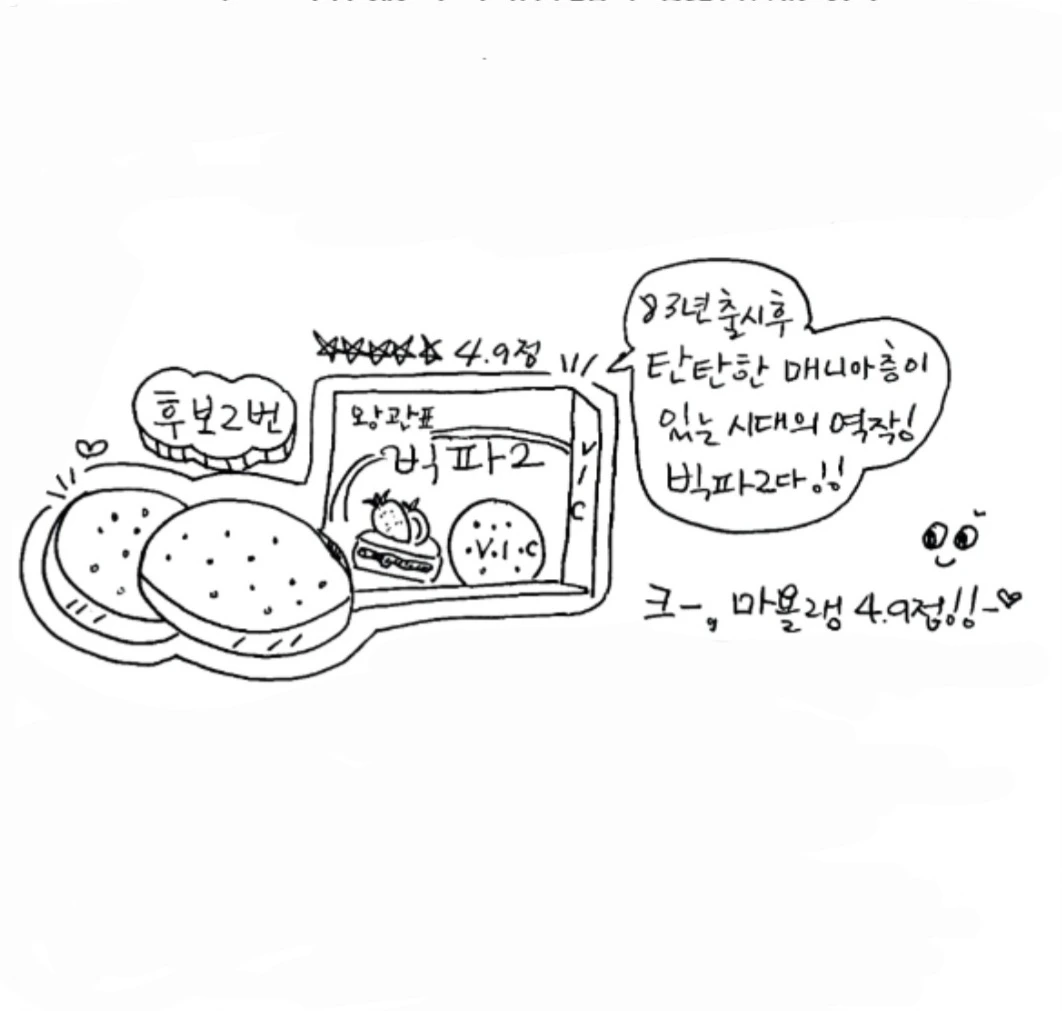 83년 출시후
탄탄한 매니아층이
있는 시대의 역작!
빅파2다!!
4.9점
후보2번
왕관표
빅파2
VIC
V.I.C
크-, 마욜랭 4.9점!!